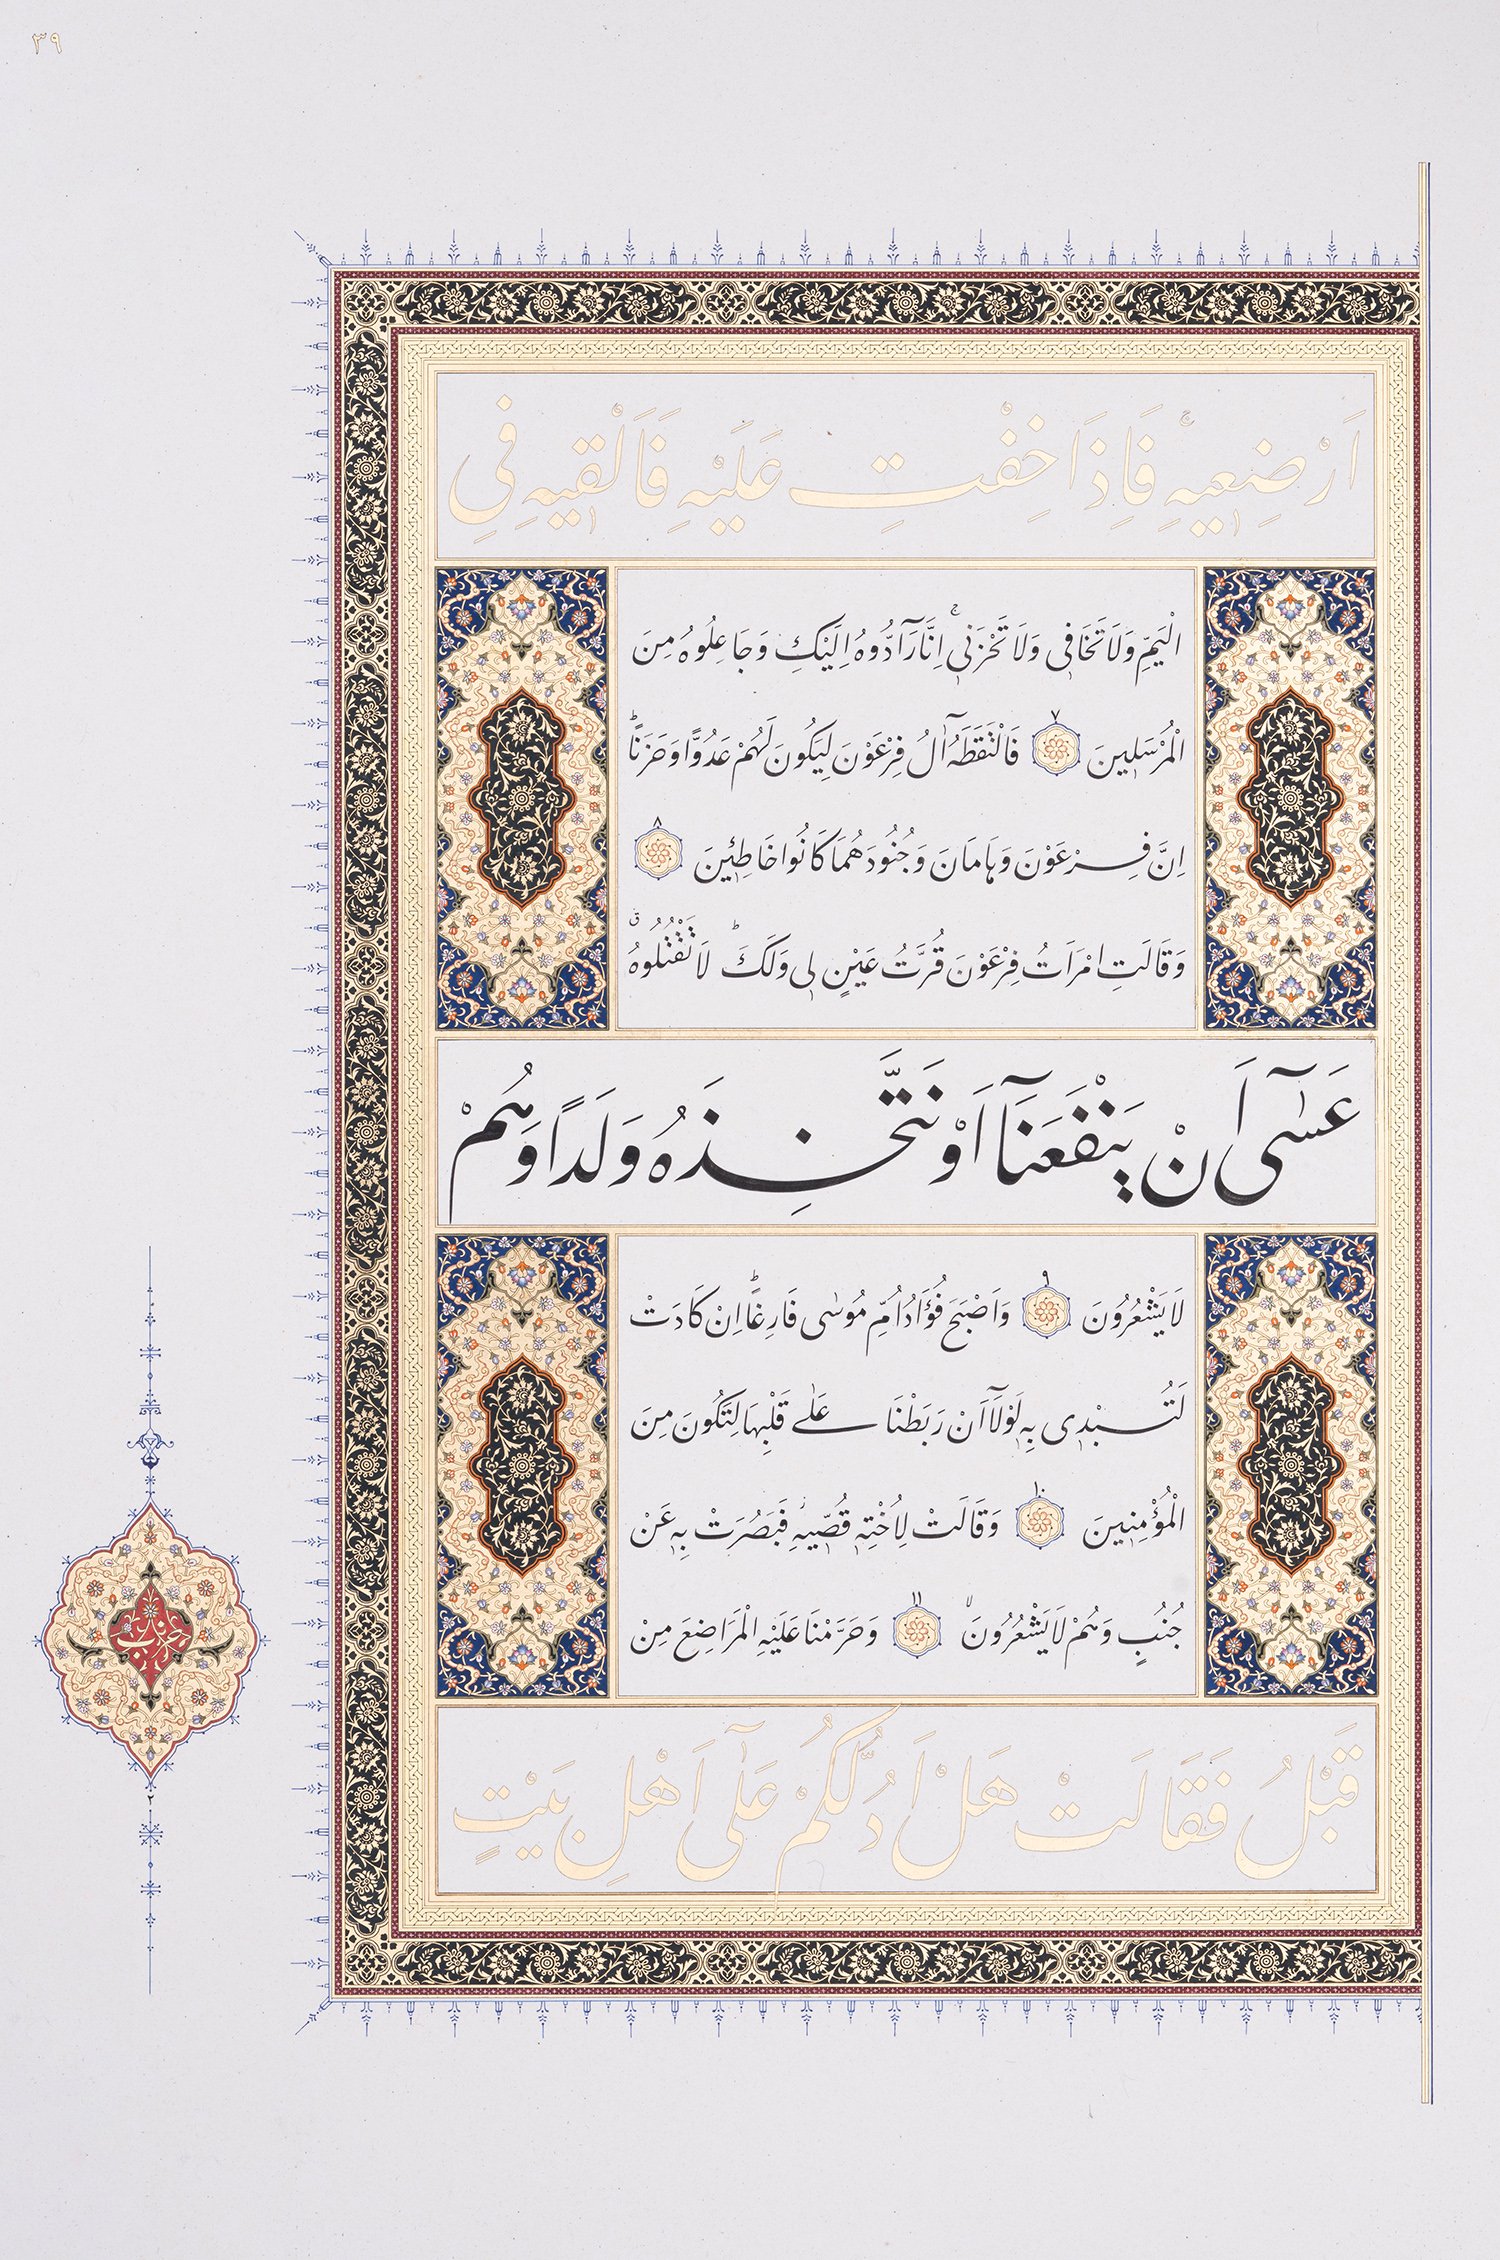 ٣٩
اَرْضِعِيهِۚ فَاِذَا خِفْتِ عَلَيْهِ فَاَلْقِيهِ فِي
الْيَمِّ وَلَا تَخَافِي وَلَا تَحْزَنِيۚ اِنَّا رَآدُّوهُ اِلَيْكِ وَجَاعِلُوهُ مِنَ
الْمُرْسَلِينَ ٧ فَالْتَقَطَهُٓ اٰلُ فِرْعَوْنَ لِيَكُونَ لَهُمْ عَدُوًّا وَحَزَنًاؕ
اِنَّ فِرْعَوْنَ وَهَامَانَ وَجُنُودَهُمَا كَانُوا خَاطِـِٔينَ ٨
وَقَالَتِ امْرَاَتُ فِرْعَوْنَ قُرَّتُ عَيْنٍ لِي وَلَكَؕ لَا تَقْتُلُوهُۗ
عَسٰٓى اَنْ يَنْفَعَنَٓا اَوْ نَتَّخِذَهُ وَلَدًا وَهُمْ
لَا يَشْعُرُونَ ٩ وَاَصْبَحَ فُؤَادُ اُمِّ مُوسٰى فَارِغًاؕ اِنْ كَادَتْ
لَتُبْدِي بِهِ لَوْلَٓا اَنْ رَبَطْنَا عَلٰى قَلْبِهَا لِتَكُونَ مِنَ
الْمُؤْمِنِينَ ١٠ وَقَالَتْ لِاُخْتِهِ قُصِّيهِ فَبَصُرَتْ بِهِ عَنْ
جُنُبٍ وَهُمْ لَا يَشْعُرُونَۙ ١١ وَحَرَّمْنَا عَلَيْهِ الْمَرَاضِعَ مِنْ
قَبْلُ فَقَالَتْ هَلْ اَدُلُّكُمْ عَلٰٓى اَهْلِ بَيْتٍ
حزب
٢